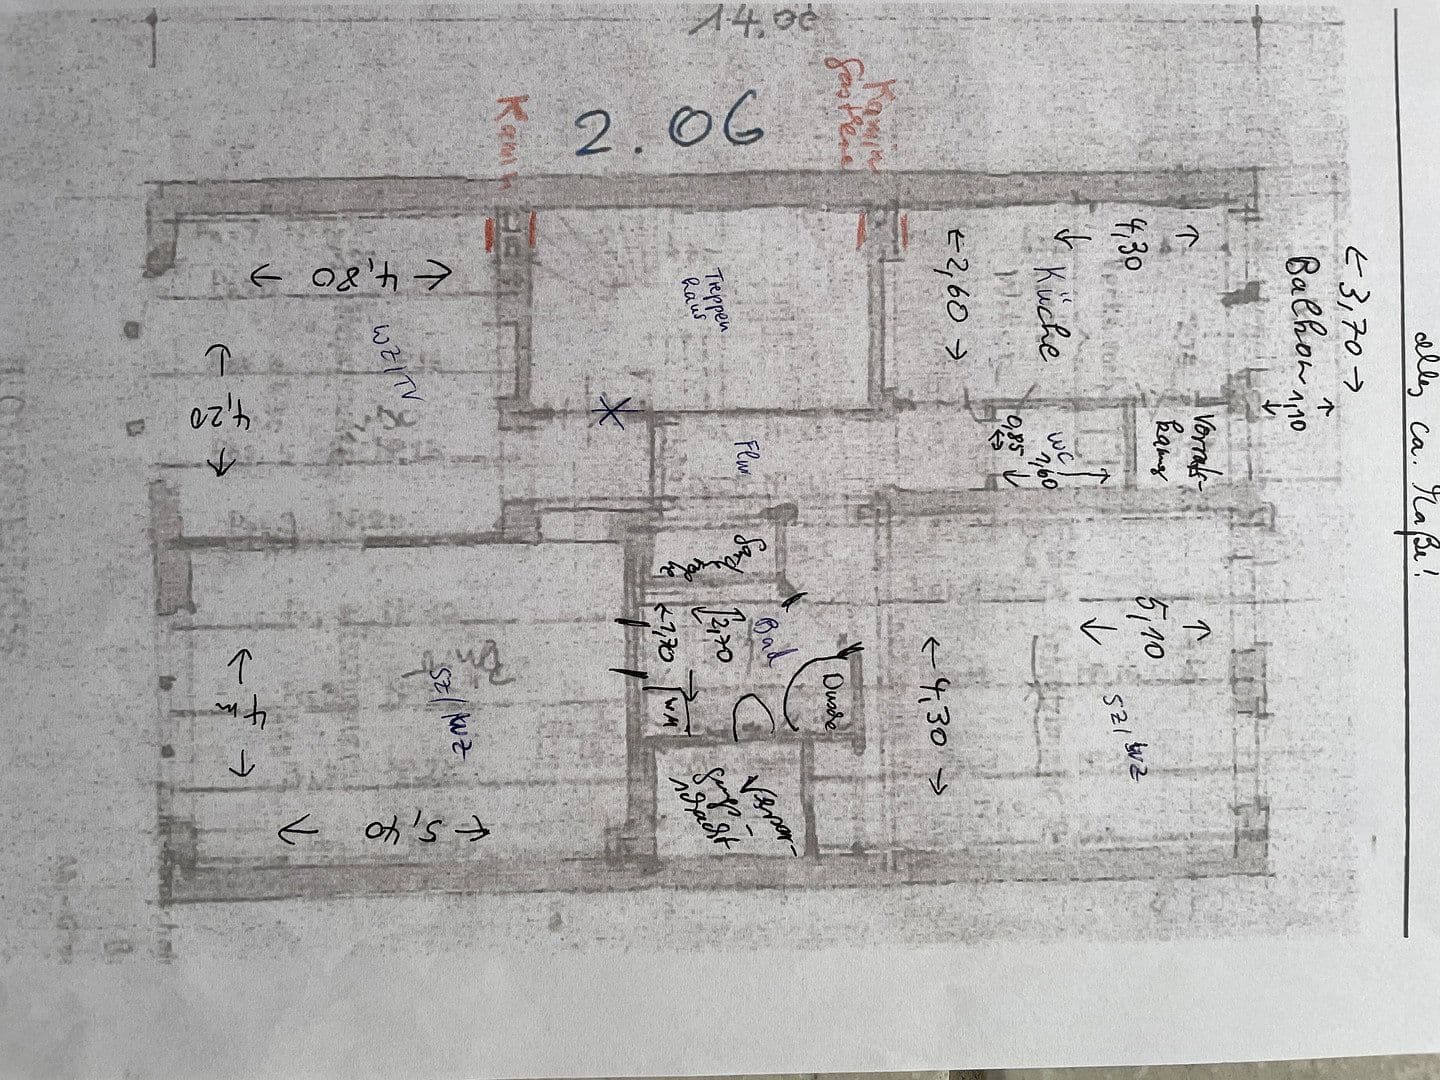 14.08
2.06
Kamin
Kamin
alles ca. Maße!
←3,70→
Balkon 1,10
4,30
Küche
←2,60→
Vorrats-
kamer
WC
1,60
0,85
Treppen
haus
Flur
4,80
WZ/TV
4,20
Bad
2,70
1,70
WM
Dusche
5,10
SZ/WZ
←4,30→
SZ/WZ
4m
5,40